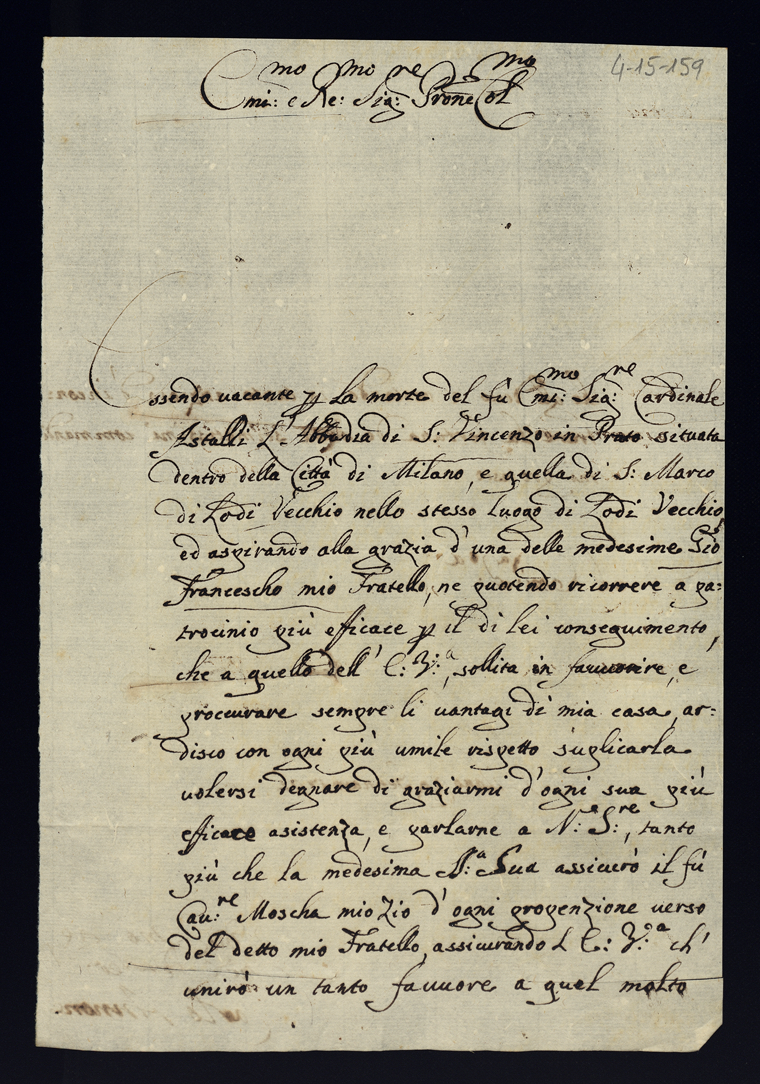 4-15-159
Emi:mo e Re:mo Sig:re Prone Col:mo
Essendo vacante p la morte del fù Emi:mo Sig:re Cardinale
Astalli l'Abbadia di S: Vincenzo in Prato situata
dentro della Città di Milano, e quella di S: Marco
di Lodi Vecchio nello stesso luogo di Lodi Vecchio,
ed aspirando alla grazia d'una delle medesime Gio
Francescho mio Fratello, ne puotendo ricorrere a pa:
trocinio più efficace p il di lei conseguimento,
che a quello dell' E: V:a, sollita in favvorire, e
proccurare sempre li vantagi di mia casa, ar:
disco con ogni più umile rispetto suplicarla
volersi degnare di graziarmi d'ogni sua più
efficace asistenza, e parlarne a N:e S:re, tanto
più che la medesima S:a Sua assicurò il fù
Cav:re Moscha mio Zio d'ogni propenzione verso
del detto mio Fratello, assicurando L E: V:a ch'
unirò un tanto favvore a quel molto